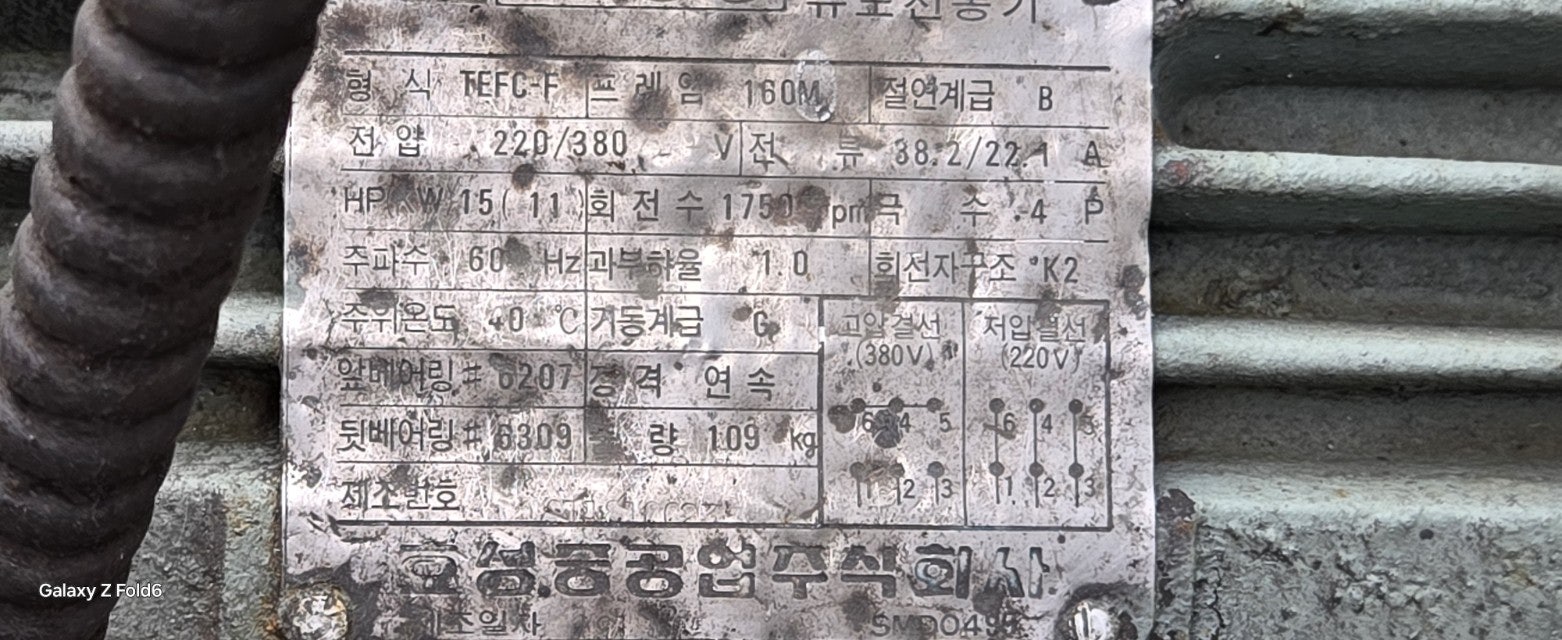 유도전동기
형 식 TEFC-F 프 레 임 160M 절연계급 B
전 압 220/380 V 전 류 38.2/22.1 A
HP/ W 15( 11 회 전 수 1750 pm 극 수 4 P
주파수 60 Hz 과부하율 1.0 회전자구조 K2
주위온도 40 ℃ 기동계급 G 고압결선 저압결선
(380V) (220V)
앞베어링 # 6207 정 격 연 속
6 4 5 6 4 5
뒷베어링 # 6309 량 109 kg
1 2 3 1 2 3
제조번호
효성중공업주식회사
제조일자
Galaxy Z Fold6